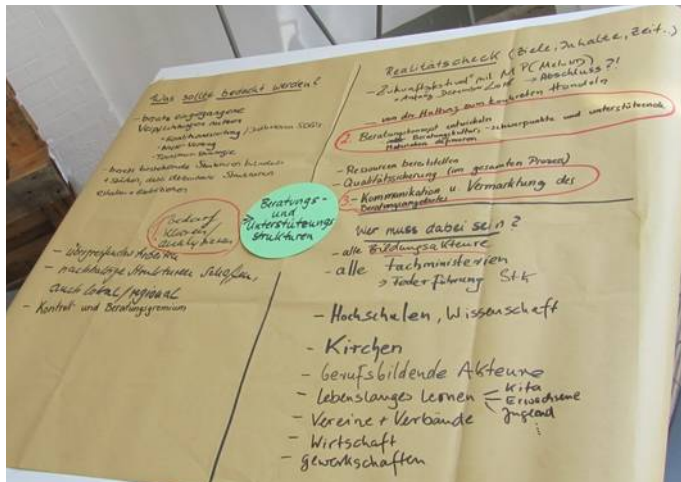 Was sollte bedacht werden?
- bereits eingegangene
Verpflichtungen nutzen
- bereits bestehende Strukturen bündeln
+ stärken,
erhalten + etablieren
Bedarf
klären/
analysieren
- übergreifendes Arbeiten
- nachhaltige Strukturen schaffen,
auch lokal/regional
- Kontroll- und Beratungsgremium
Beratungs-
und
Unterstützungs
strukturen
Realitätscheck (Ziele, Inhalte, Zeit..)
- "Zukunftsfestival" mit MP
→ Abschluss?!
- von der Haltung zum konkreten Handeln
2. Beratungskonzept entwickeln
Beratungskultur, -schwerpunkte und unterstützende
Materialien definieren
- Ressourcen bereitstellen
- Qualitätssicherung (im gesamten Prozess)
3. - Kommunikation u. Vermarktung des
Beratungsangebotes
Wer muss dabei sein?
- alle Bildungsakteure
- alle Fachministerien
→ Federführung StK
- Hochschulen, Wissenschaft
- Kirchen
- berufsbildende Akteure
- Lebenslanges Lernen - Kita
- Erwachsene
Jugend
- Vereine + Verbände
- Wirtschaft
- Gewerkschaften